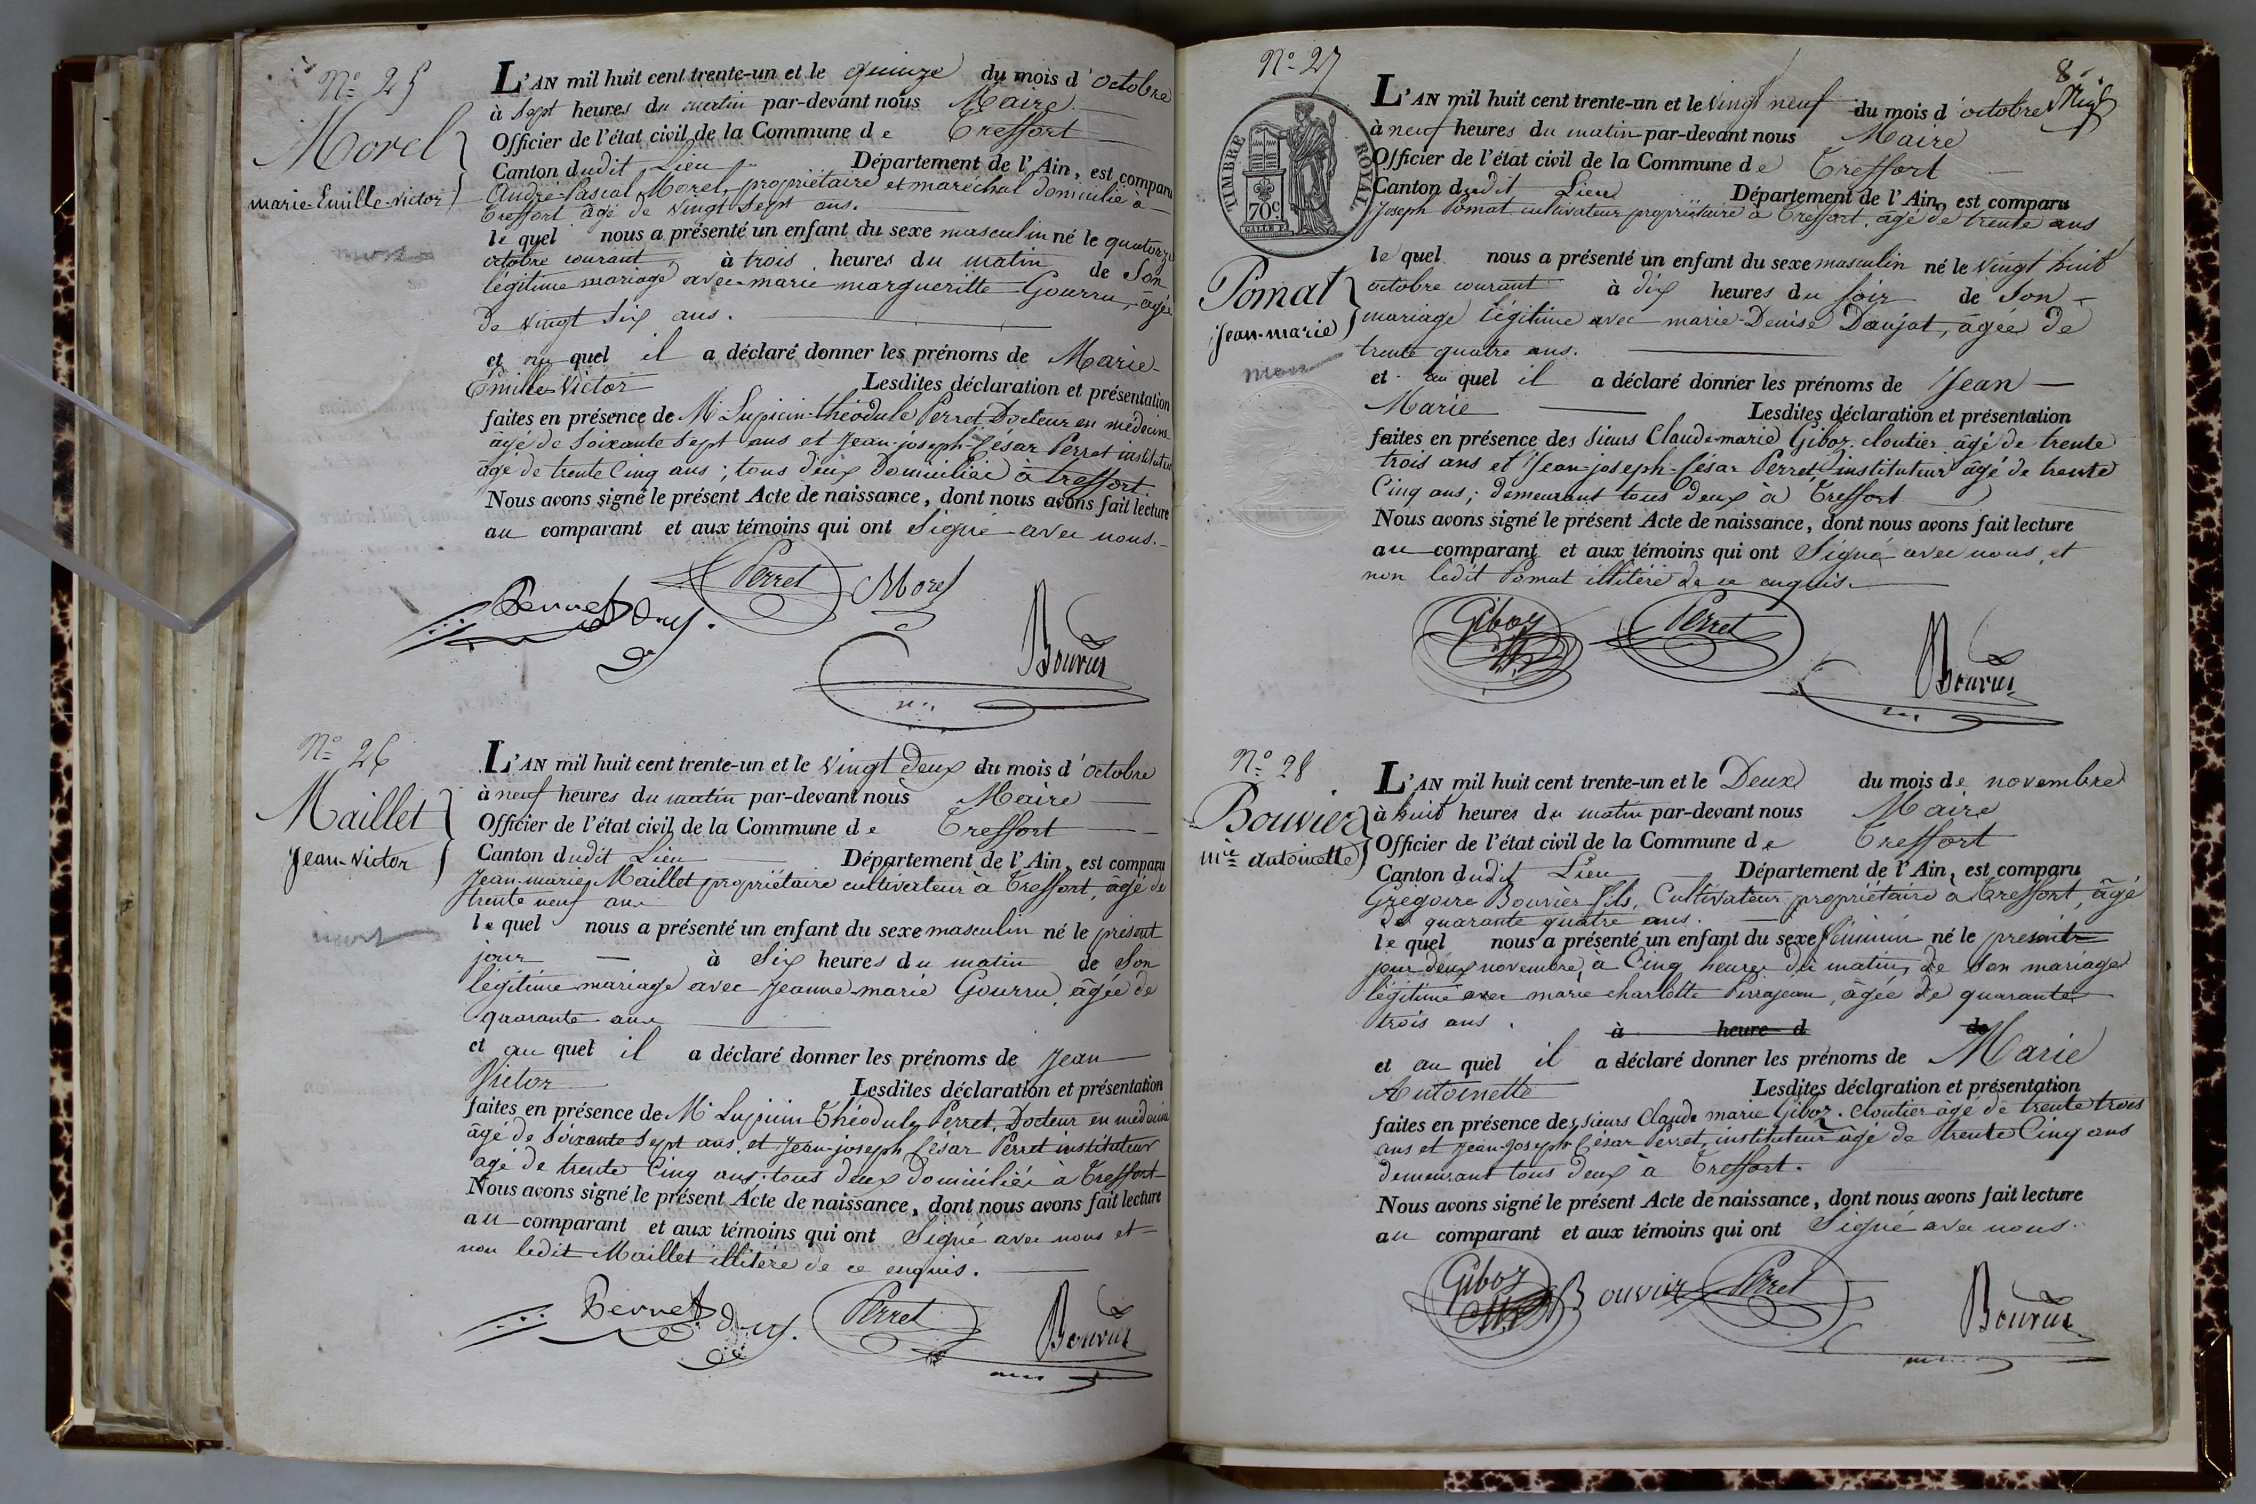 Nº 25
Morel
marie-Emille-Victor
mort
L'AN mil huit cent trente-un et le quinze du mois d'octobre
à sept heures du matin par-devant nous Maire
Officier de l'état civil de la Commune de Treffort
Canton dudit Lieu Département de l'Ain, est comparu
André-Pascal Morel, propriétaire et maréchal domicilié à
Treffort âgé de vingt sept ans.
le quel nous a présenté un enfant du sexe masculin né le quatorze
octobre courant, à trois heures du matin de Son
légitime mariage avec marie margueritte Gourru, âgée
de vingt six ans.
et au quel il a déclaré donner les prénoms de Marie-
Emille-Victor Lesdites déclaration et présentation
faites en présence de Mr Lupicin-théodule Perret Docteur en médecine
âgé de soixante sept ans et Jean-joseph-César Perret instituteur
âgé de trente Cinq ans; tous deux Domiciliés à treffort.
Nous avons signé le présent Acte de naissance, dont nous avons fait lecture
au comparant et aux témoins qui ont Signé avec nous.
Perret Morel
Perret D.m.
Bouvier
Nº 26
Maillet
Jean-Victor
mort
L'AN mil huit cent trente-un et le vingt deux du mois d'octobre
à neuf heures du matin par-devant nous Maire
Officier de l'état civil de la Commune de Treffort
Canton dudit Lieu Département de l'Ain, est comparu
Jean-marie Maillet propriétaire cultivateur à Treffort, âgé de
trente neuf ans
le quel nous a présenté un enfant du sexe masculin né le présent
jour à Six heures du matin de Son
légitime mariage avec Jeanne-marie Gourru, âgée de
quarante ans
et au quel il a déclaré donner les prénoms de Jean
Victor Lesdites déclaration et présentation
faites en présence de Mr Lupicin Théodule Perret, Docteur en médecine
âgé de soixante sept ans, et Jean-joseph César Perret instituteur
âgé de trente Cinq ans; tous deux Domiciliés à Treffort
Nous avons signé le présent Acte de naissance, dont nous avons fait lecture
au comparant et aux témoins qui ont Signé avec nous et
non ledit Maillet illitéré de ce enquis.
Perret D.m. Perret Bouvier
8
Nº 27
TIMBRE ROYAL
70c
Pomat
Jean-marie
mort
L'AN mil huit cent trente-un et le vingt neuf du mois d'octobre
à neuf heures du matin par-devant nous Maire
Officier de l'état civil de la Commune de Treffort
Canton dudit Lieu Département de l'Ain, est comparu
Joseph Pomat cultivateur propriétaire à Treffort, âgé de trente ans
le quel nous a présenté un enfant du sexe masculin né le vingt huit
octobre courant à dix heures du soir de Son
mariage légitime avec marie-Denise Daujat, âgée de
trente quatre ans.
et au quel il a déclaré donner les prénoms de Jean
Marie Lesdites déclaration et présentation
faites en présence des sieurs Claude-marie Giboz, cloutier âgé de trente
trois ans et Jean-joseph-César Perret, instituteur âgé de trente
Cinq ans; demeurant tous deux à Treffort
Nous avons signé le présent Acte de naissance, dont nous avons fait lecture
au comparant et aux témoins qui ont Signé avec nous, et
non ledit Pomat illitéré de ce enquis.
Giboz Perret Bouvier
Nº 28
Bouvier
mie Antoinette
L'AN mil huit cent trente-un et le Deux du mois de novembre
à huit heures du matin par-devant nous Maire
Officier de l'état civil de la Commune de Treffort
Canton dudit Lieu Département de l'Ain, est comparu
Grégoire Bouvier fils, Cultivateur propriétaire à Treffort, âgé
de quarante quatre ans.
le quel nous a présenté un enfant du sexe féminin né le présent
jour deux novembre, à Cinq heures du matin, de Son mariage
légitime avec marie charlotte Perrajean, âgée de quarante
trois ans.
à heure d de
et au quel il a déclaré donner les prénoms de Marie
Antoinette Lesdites déclaration et présentation
faites en présence des sieurs Claude marie Giboz, cloutier âgé de trente trois
ans et Jean-Joseph César Perret, instituteur âgé de trente Cinq ans
demeurant tous deux à Treffort.
Nous avons signé le présent Acte de naissance, dont nous avons fait lecture
au comparant et aux témoins qui ont Signé avec nous.
Giboz Bouvier Perret
Bouvier